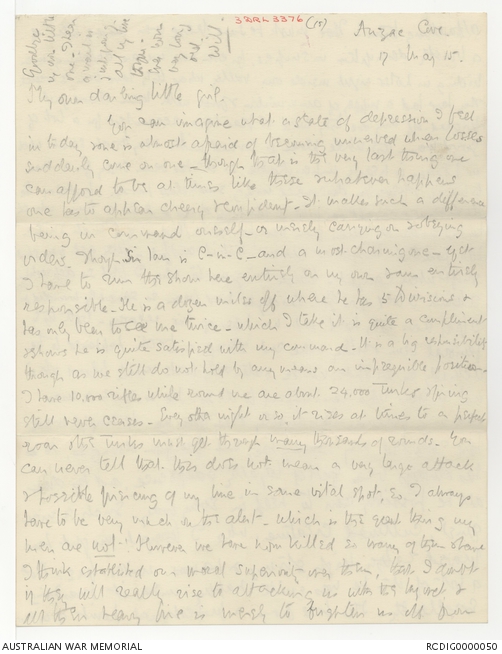 3DRL 3376 (15)
Anzac Cove
17 May 15.
Goodbye
my own little
one
all my
love
Will
My own darling little girl.
You can imagine what a state of depression I feel
in today, one is almost afraid of becoming unnerved when losses
suddenly come on one - though that is the very last thing one
can afford to be at times like these & whatever happens
one has to appear cheery & confident - It makes such a difference
being in command oneself - or merely carrying on & obeying
orders. Though Sir Ian is C-in-C - and a most charming one - yet
I have to run this show here entirely on my own & am entirely
responsible - He is a dozen miles off where he has 5 Divisions &
has only been to see me twice - which I take it is quite a compliment
& shows he is quite satisfied with my command. It is a big responsibility
though as we still do not hold by any means an impregnable position.
I have 10,000 rifles while round me are about 24,000 Turks & firing
still never ceases. Every other night or so, it rises at times to a perfect
roar & the Turks must get through many thousands of rounds. You
can never tell that this does not mean a very large attack
& possible piercing of my line in some vital spot, so I always
have to be very much on the alert - which is the great thing my
men are not! However we have now killed so many of them & have
I think established our moral superiority over them, that I doubt
if they will really rise to attacking us with the bayonet &
all their heavy fire is merely to frighten us off from
AUSTRALIAN WAR MEMORIAL
RCDIG0000050